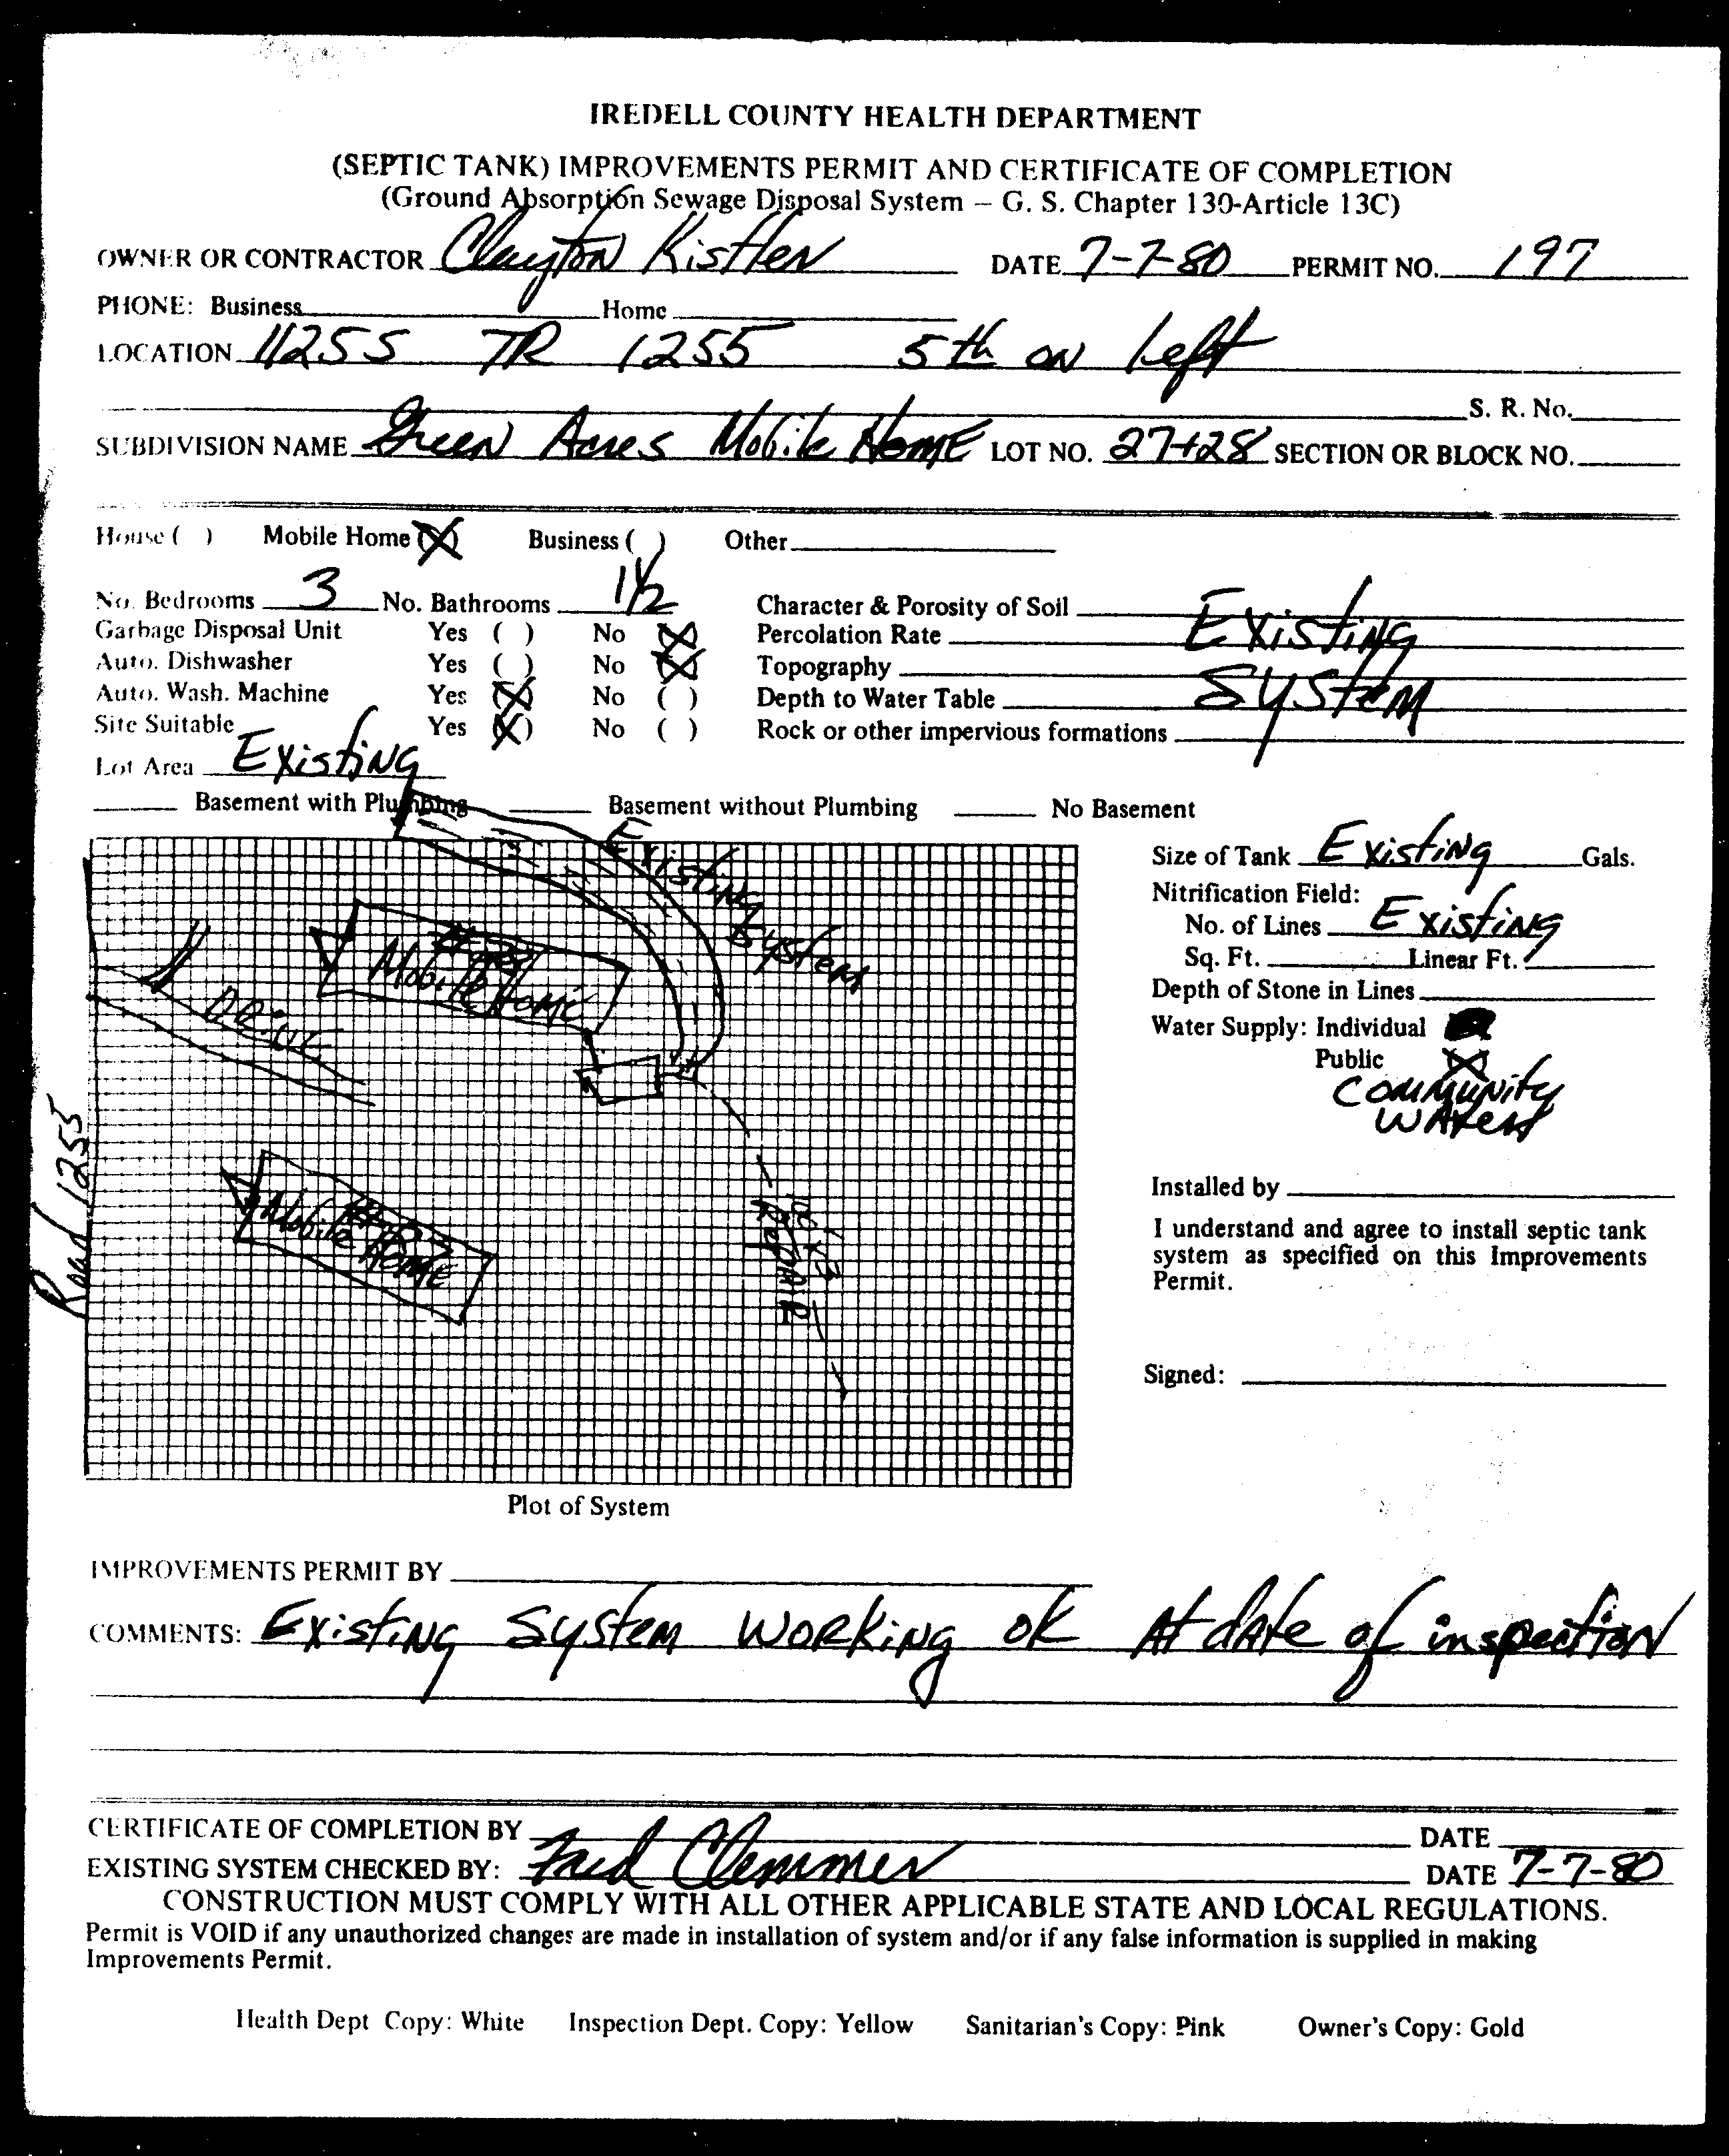 IREDELL COUNTY HEALTH DEPARTMENT
(SEPTIC TANK) IMPROVEMENTS PERMIT AND CERTIFICATE OF COMPLETION
(Ground Absorption Sewage Disposal System – G. S. Chapter 130-Article 13C)
OWNER OR CONTRACTOR Clayton Kistler DATE 7-7-80 PERMIT NO. 197
PHONE: Business Home
LOCATION 1125S TR 1255 5th on left
S. R. No.
SUBDIVISION NAME Green Acres Mobile Home LOT NO. 27+28 SECTION OR BLOCK NO.
House ( ) Mobile Home (X) Business ( ) Other
No. Bedrooms 3 No. Bathrooms 1½ Character & Porosity of Soil
Garbage Disposal Unit Yes ( ) No (X) Percolation Rate Existing
Auto. Dishwasher Yes ( ) No (X) Topography
Auto. Wash. Machine Yes (X) No ( ) Depth to Water Table System
Site Suitable Yes (X) No ( ) Rock or other impervious formations
Lot Area Existing
Basement with Plumbing Basement without Plumbing No Basement
Existing System
Mobile Home
Drive
Road 1255
Mobile Home
Repair
Size of Tank Existing Gals.
Nitrification Field:
No. of Lines Existing
Sq. Ft. Linear Ft.
Depth of Stone in Lines
Water Supply: Individual
Public (X)
Community
Water
Installed by
I understand and agree to install septic tank
system as specified on this Improvements
Permit.
Signed:
Plot of System
IMPROVEMENTS PERMIT BY
COMMENTS: Existing System Working OK At date of inspection
CERTIFICATE OF COMPLETION BY DATE
EXISTING SYSTEM CHECKED BY: Fred Clemmer DATE 7-7-80
CONSTRUCTION MUST COMPLY WITH ALL OTHER APPLICABLE STATE AND LOCAL REGULATIONS.
Permit is VOID if any unauthorized changes are made in installation of system and/or if any false information is supplied in making
Improvements Permit.
Health Dept Copy: White Inspection Dept. Copy: Yellow Sanitarian's Copy: Pink Owner's Copy: Gold